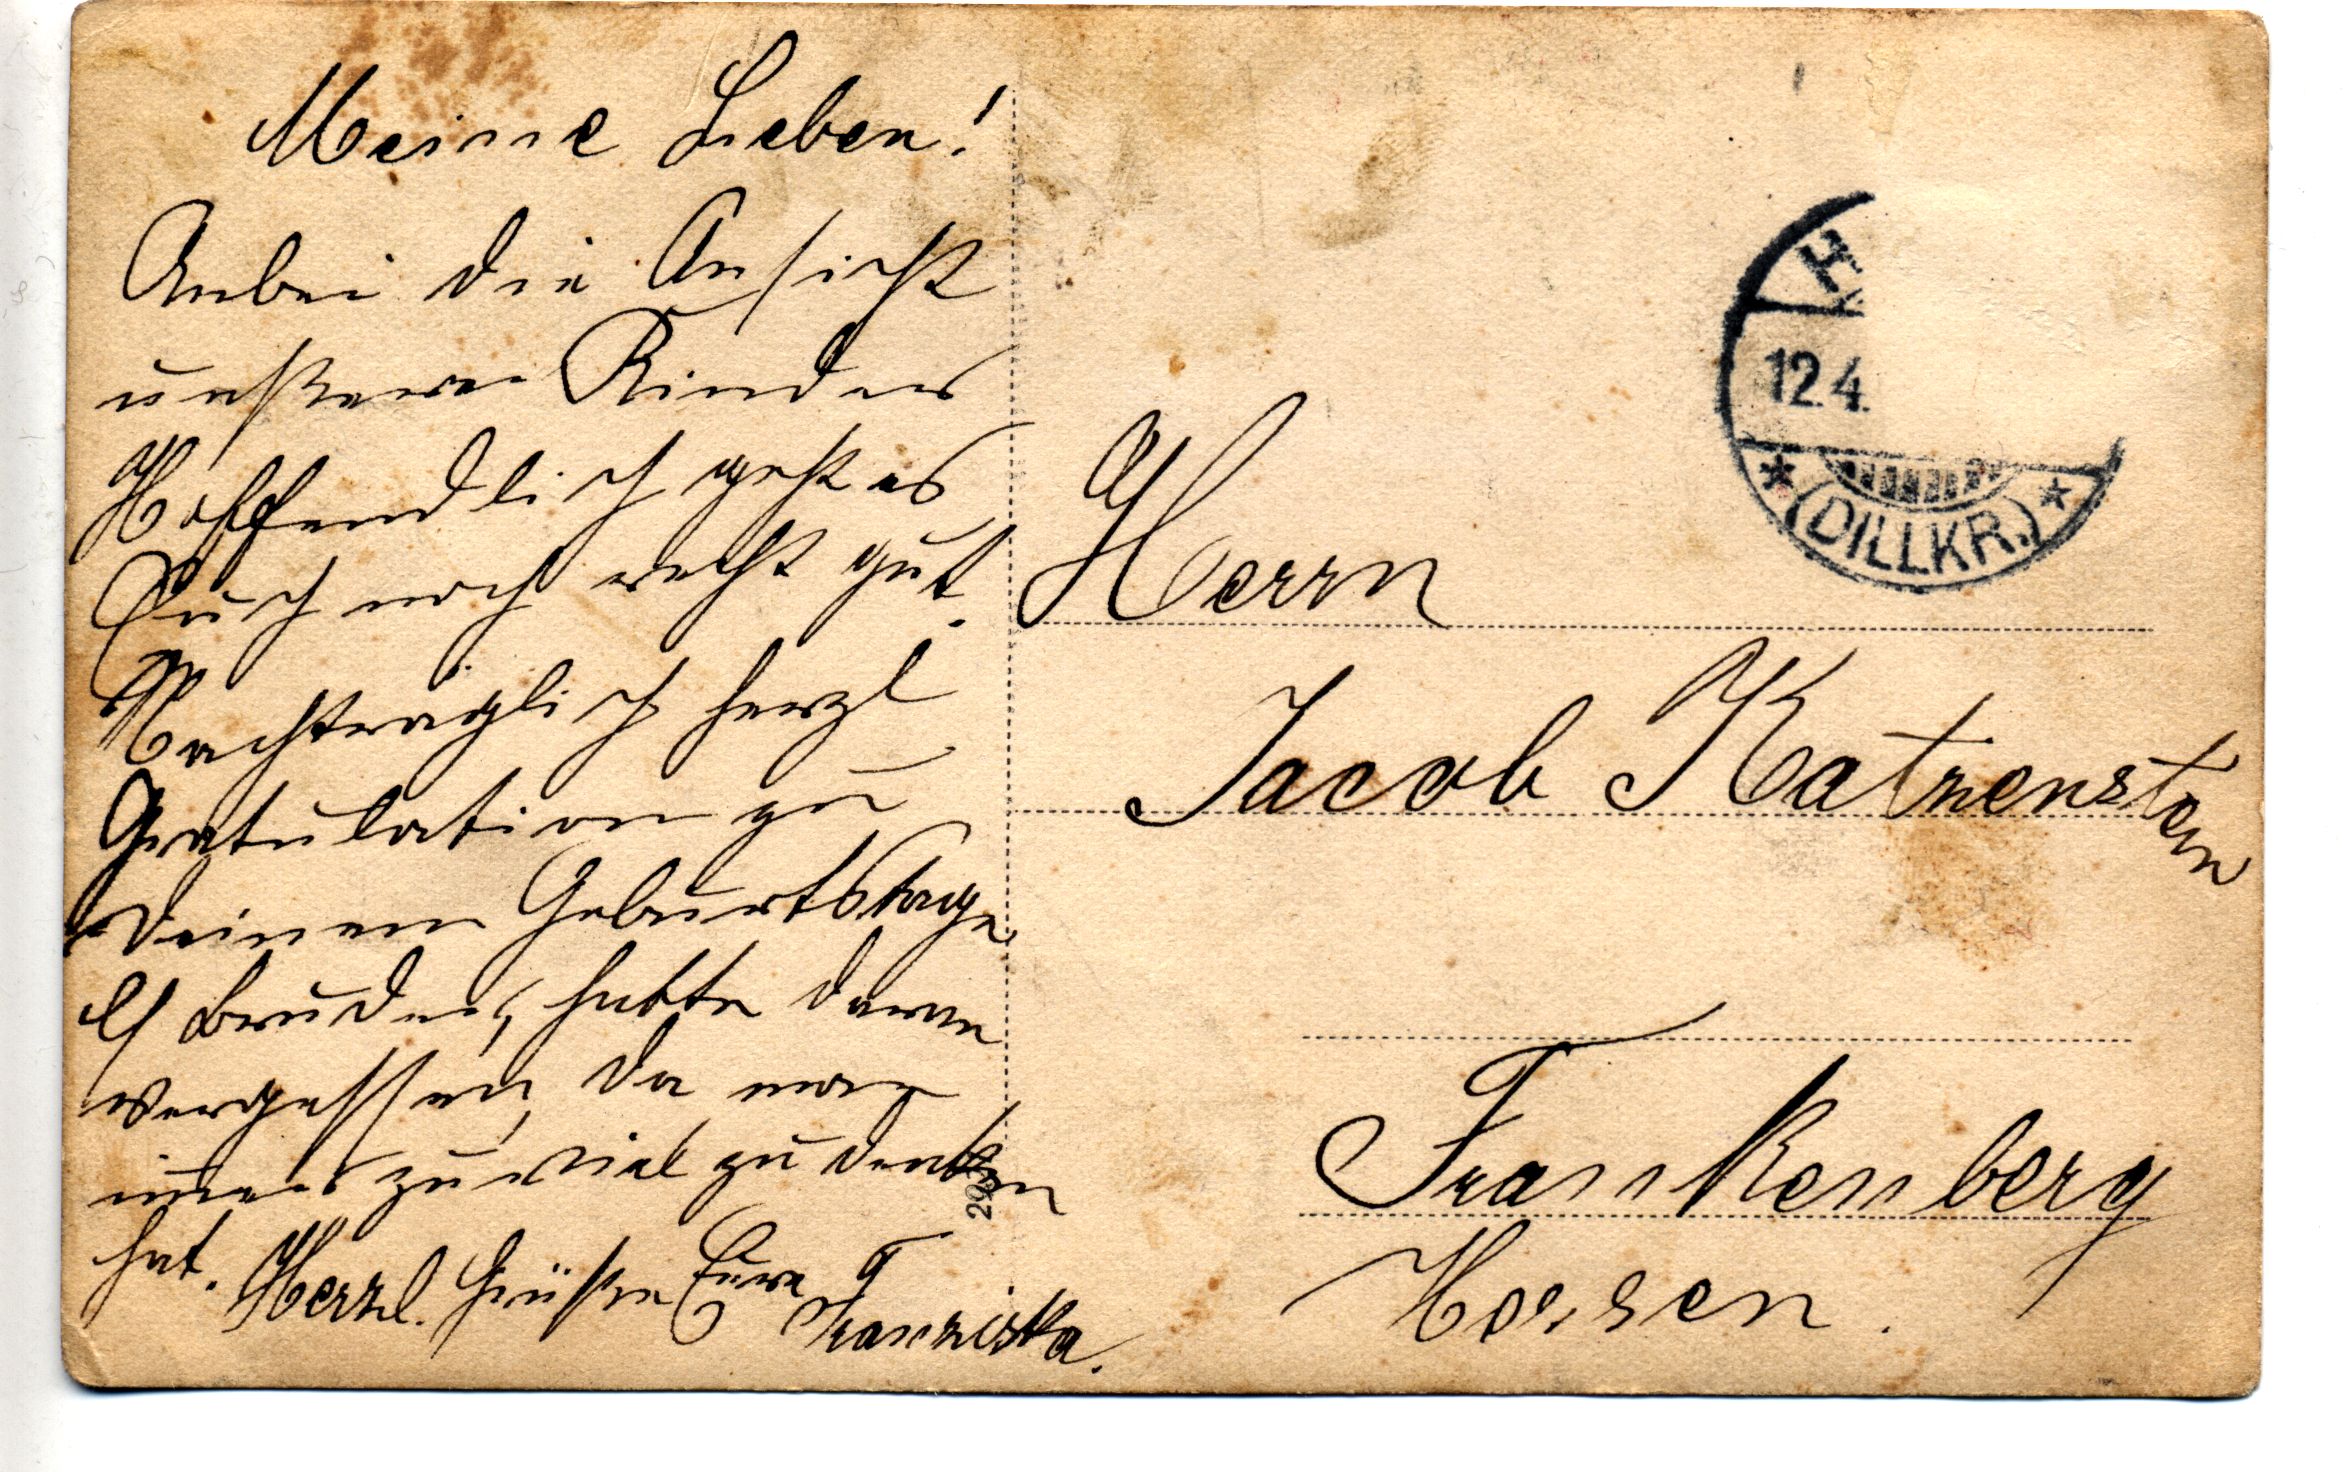 Meine Lieben!
Anbei die Ansicht
unserer Kinder
Hoffendlich geht es
Euch noch recht gut.
Nachträglich herzl
Gratulation zu
deinem Geburtstage
lb Bruder, hatte daran
vergessen, da man
immer zu viel zu denken
hat. Herzl. Grüße Eure
Franziska.
H
12.4.
(DILLKR.)
Herrn
Jacob Katzenstein
Frankenberg
Hessen.